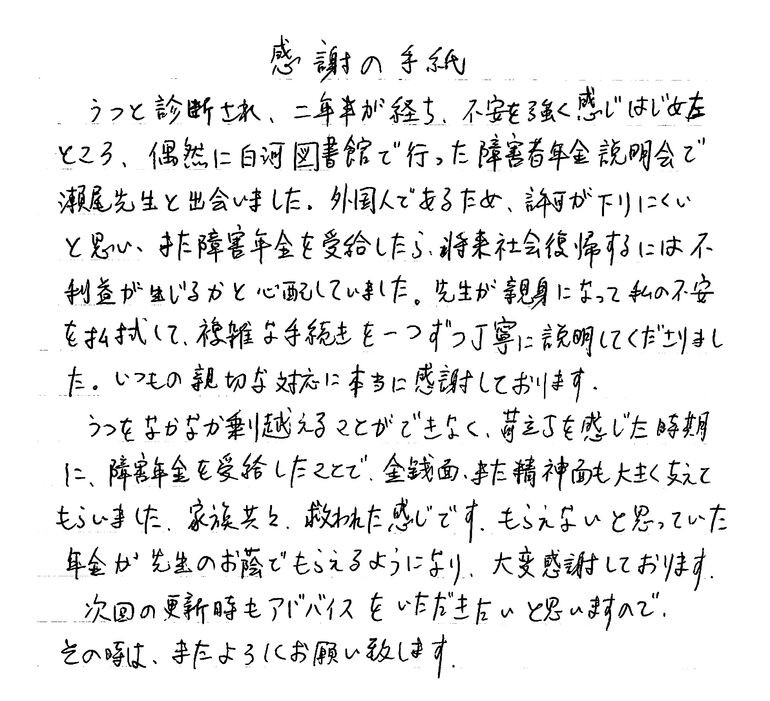 感謝の手紙
うつと診断され、二年半が経ち、不安を強く感じはじめた
ところ、偶然に白河図書館で行った障害者年金説明会で
瀬尾先生と出会いました。外国人であるため、許可が下りにくい
と思い、また障害年金を受給したら、将来社会復帰するには不
利益が生じるかと心配していました。先生が親身になって私の不安
を払拭して、複雑な手続きを一つずつ丁寧に説明してくださりまし
た。いつもの親切な対応に本当に感謝しております。
うつをなかなか乗り越えることができなく、苛立ちを感じた時期
に、障害年金を受給したことで、金銭面、また精神面も大きく支えて
もらいました、家族共々、救われた感じです、もらえないと思っていた
年金が先生のお蔭でもらえるようになり、大変感謝しております。
次回の更新時もアドバイスをいただきたいと思いますので、
その時は、またよろしくお願い致します。